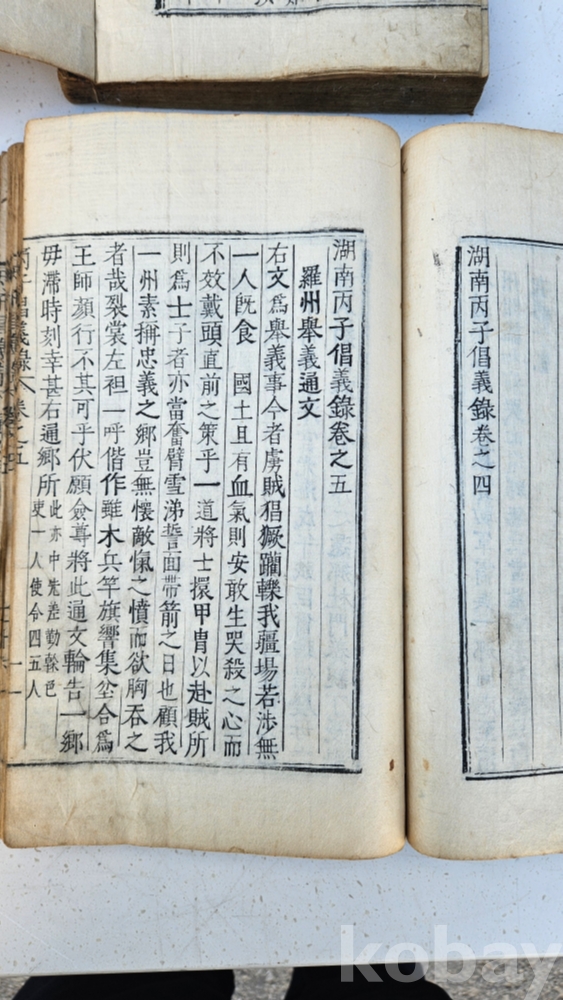 湖南丙子倡義錄卷之四
湖南丙子倡義錄卷之五
羅州舉義通文
右文爲舉義事今者虜賊猖獗躪轢我疆場若涉無
一人旣食 國土且有血氣則安敢生哭殺之心而
不效戴頭直前之策乎一道將士擐甲冑以赴賊所
則爲士子者亦當奮臂雪涕誓面帶箭之日也顧我
一州素稱忠義之鄉豈無愾敵愾之憤而欲胸呑之
者哉裂裳左袒一呼偕作雖木兵竿旗響集坌合爲
王師顏行不其可乎伏願僉尊將此通文輪告一鄉
毋滯時刻幸甚右通鄉所
此亦中先差勤幹色
吏一人使令四五人
kobay